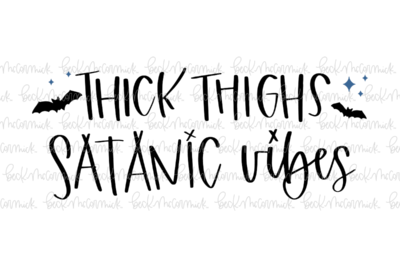 THICK THIGHS
SATANIC vibes